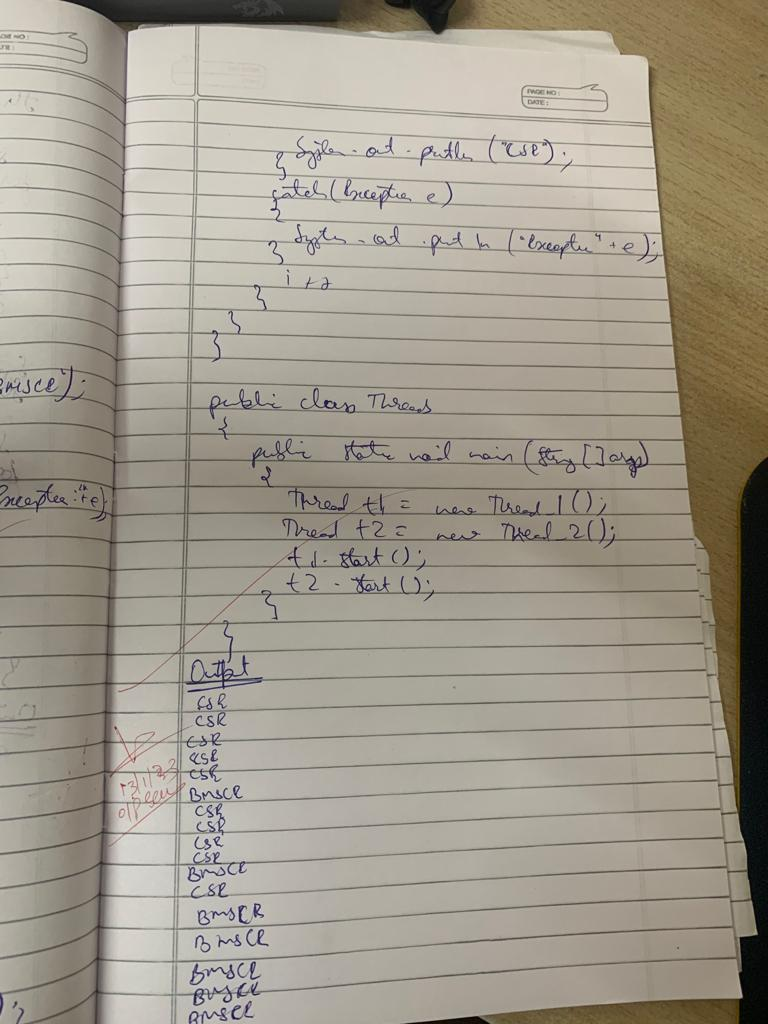 PAGE NO :
DATE :
System.out.println ("CSE");
}
catch(Exception e)
{
System.out.println ("Exception" + e);
}
i++
}
}
}
bmsce");
Exception:"+e);
public class Threads
{
public static void main (String []args)
{
Thread t1 = new Thread_1();
Thread t2 = new Thread_2();
t1.start();
t2.start();
}
}
Output
CSE
CSE
CSE
CSE
CSE
BMSCE
CSE
CSE
CSE
CSE
BMSCE
CSE
BMSCE
BMSCE
BMSCE
BMSCE
BMSCE